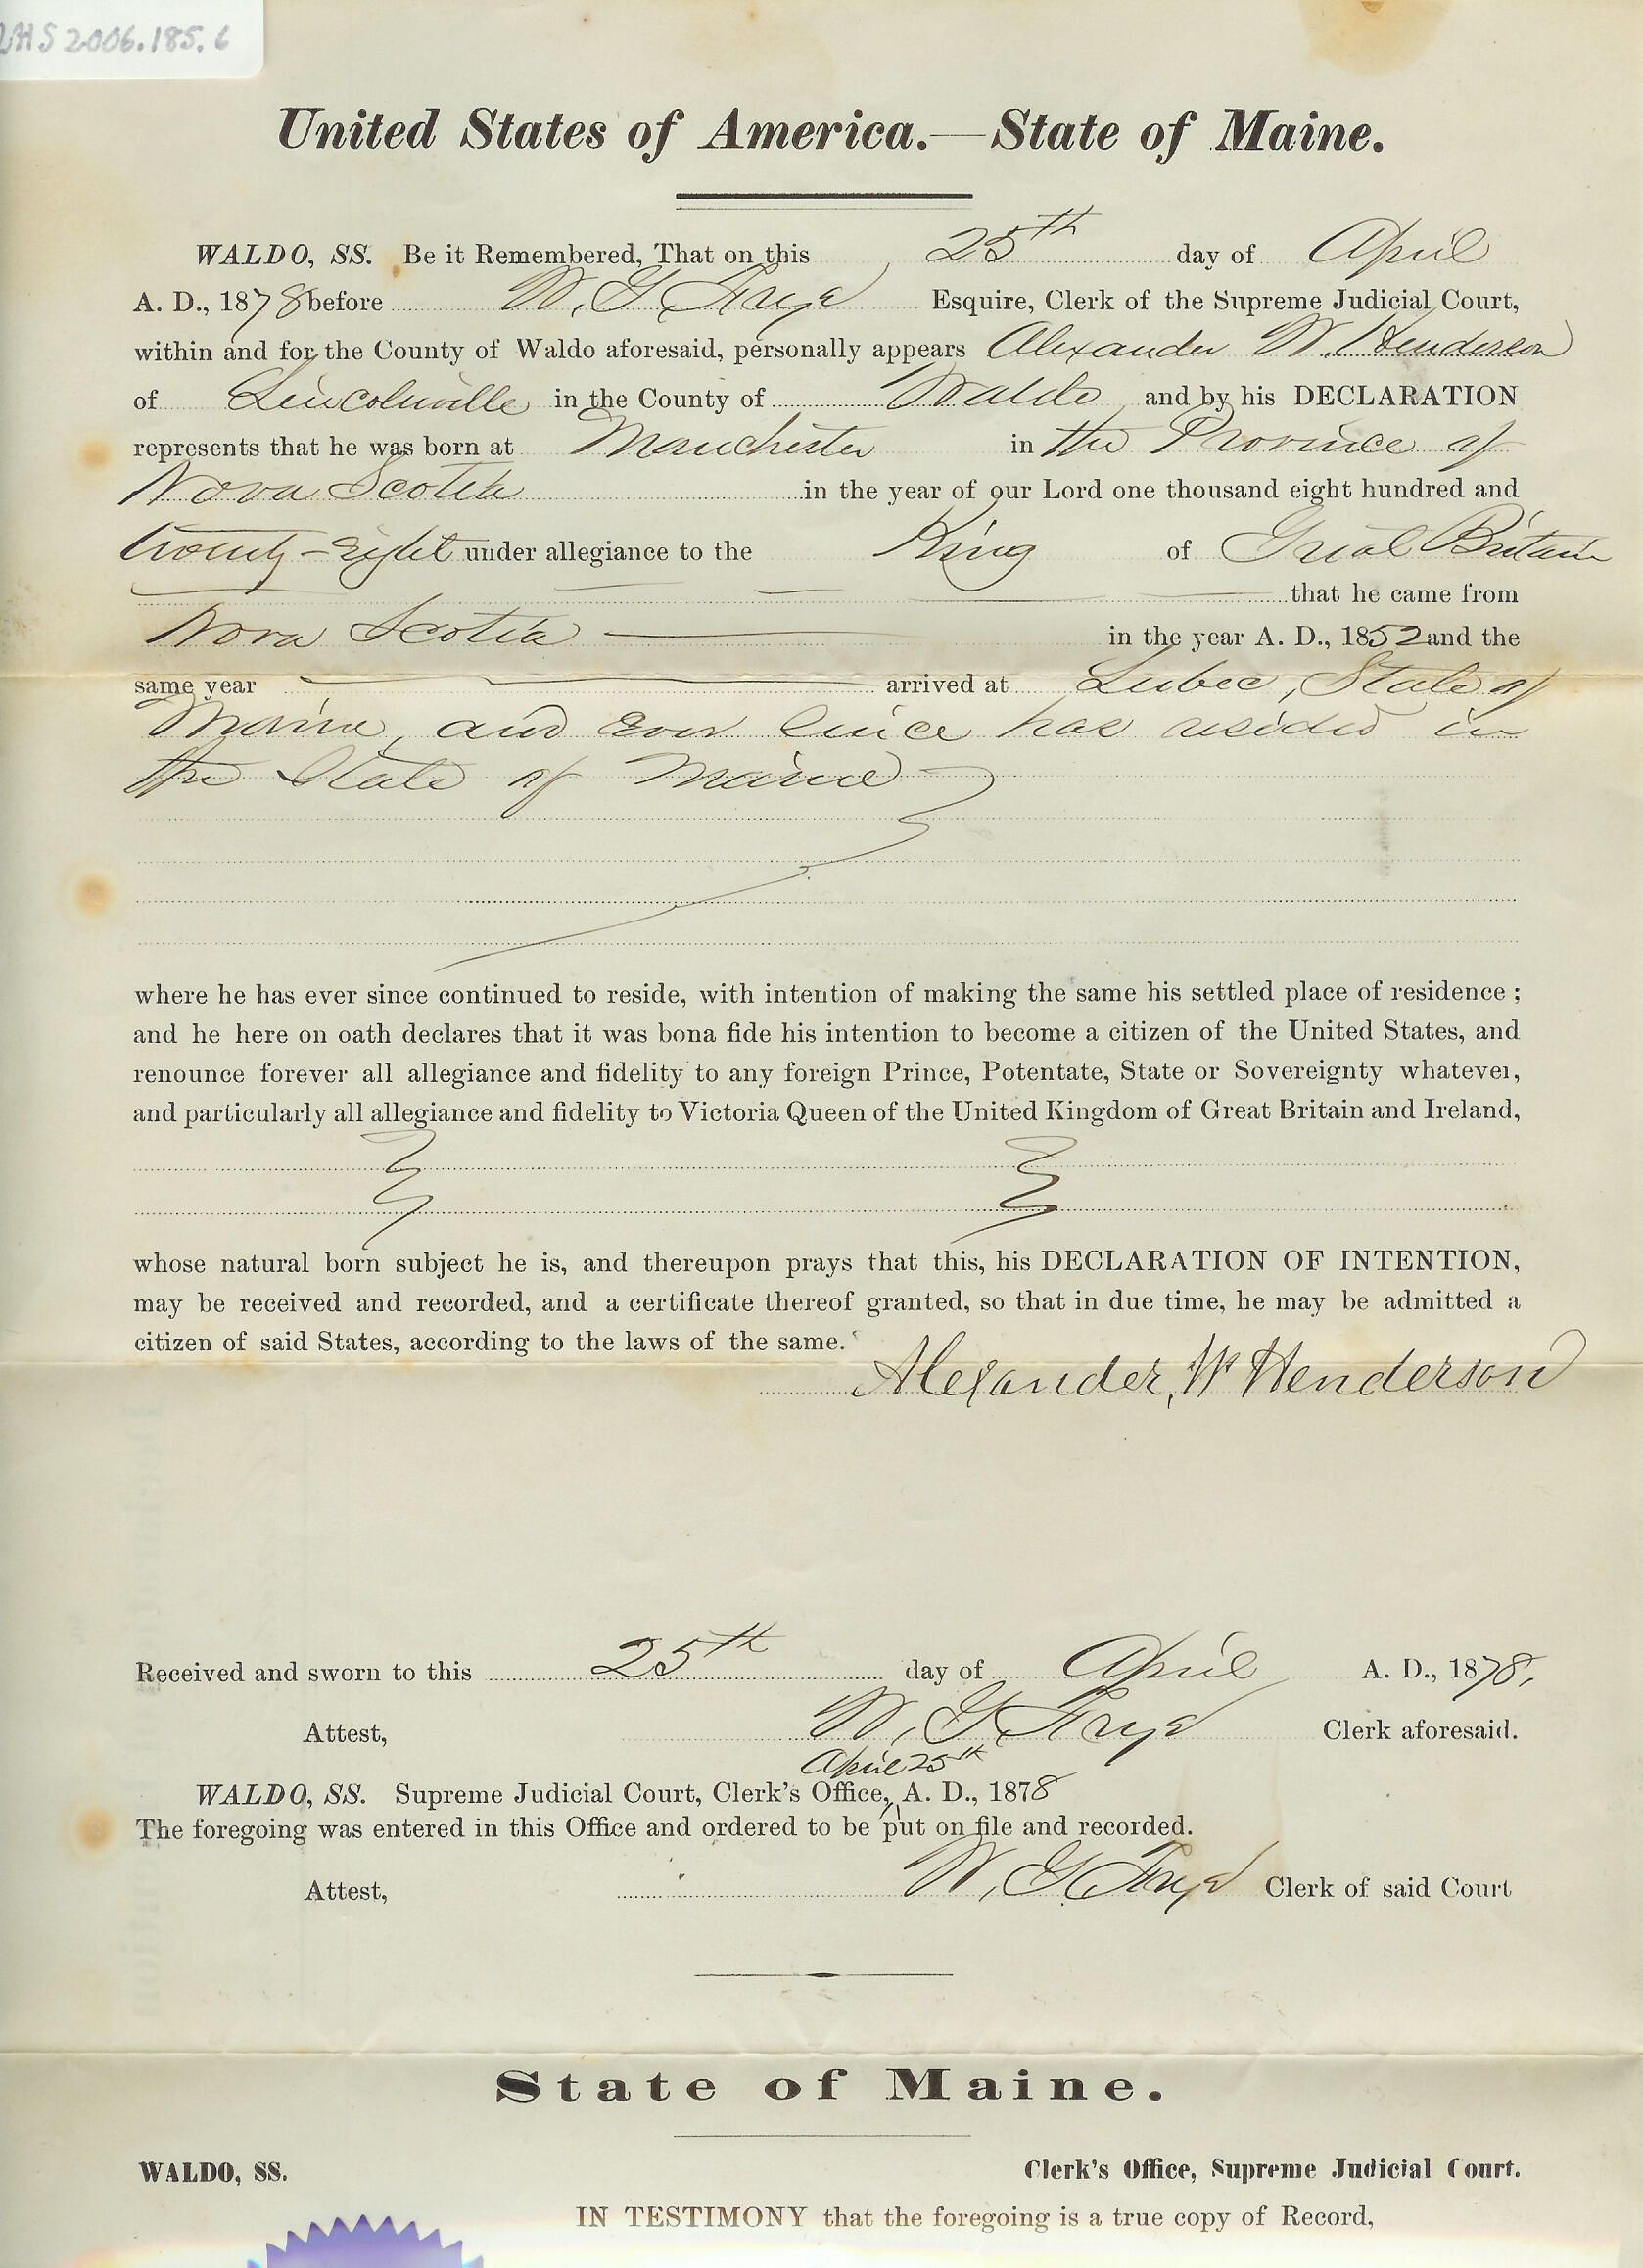 LHS 2006.185.6
United States of America.—State of Maine.
WALDO, SS. Be it Remembered, That on this 25th day of April
A. D., 1878 before W. G. Frye Esquire, Clerk of the Supreme Judicial Court,
within and for the County of Waldo aforesaid, personally appears Alexander W. Henderson
of Lincolnville in the County of Waldo and by his DECLARATION
represents that he was born at Manchester in the Province of
Nova Scotia in the year of our Lord one thousand eight hundred and
twenty-Eight under allegiance to the King of Great Britain
that he came from
Nova Scotia in the year A. D., 1852 and the
same year arrived at Lubec, State of
Maine, and ever since has resided in
the State of Maine
where he has ever since continued to reside, with intention of making the same his settled place of residence ;
and he here on oath declares that it was bona fide his intention to become a citizen of the United States, and
renounce forever all allegiance and fidelity to any foreign Prince, Potentate, State or Sovereignty whatever,
and particularly all allegiance and fidelity to Victoria Queen of the United Kingdom of Great Britain and Ireland,
whose natural born subject he is, and thereupon prays that this, his DECLARATION OF INTENTION,
may be received and recorded, and a certificate thereof granted, so that in due time, he may be admitted a
citizen of said States, according to the laws of the same.
Alexander, W Henderson
Received and sworn to this 25th day of April A. D., 1878,
Attest, W. G. Frye Clerk aforesaid.
April 25th
WALDO, SS. Supreme Judicial Court, Clerk's Office, A. D., 1878
The foregoing was entered in this Office and ordered to be put on file and recorded.
Attest, W. G. Frye Clerk of said Court
State of Maine.
WALDO, SS. Clerk's Office, Supreme Judicial Court.
IN TESTIMONY that the foregoing is a true copy of Record,